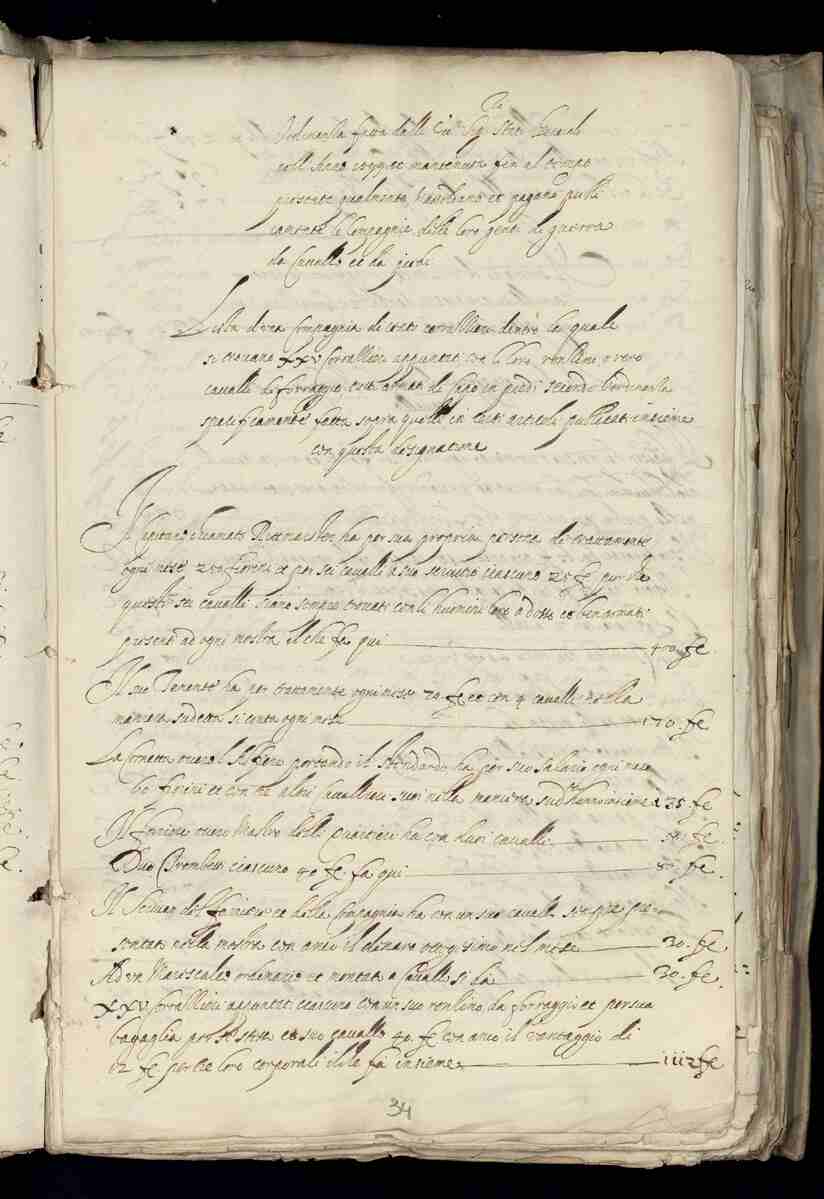 Ordinanza fatta dalli Ecc.mi Sig.ri Stati Generali
nell Anno 1599 et mantenuta fin al tempo
presente qualmente et pagano
le Compagnie delle loro genti di guerra
da Cavallo et da piedi
Lista d'una Compagnia di cento corrallieri dentro la quale
si trovano XXV Corrallieri appuntati con le loro ronlino o vero
cavalli da forraggio tutti armati di capo in piedi secondo l'ordinanza
specificamente fatta sopra quelli in tutti articoli pullicati insieme
con questa designatione
Il Capitano chiamato Ritmaister ha per sua propria persona di trattamento
ogni mese 250 fiorini et per sei cavalli a suo servitio ciascuno 25 fe pur che
questi sei cavalli siano sempre trovati con li huomini loro a dosso et ben armati
presenti ad ogni mostra il che fa qui 400. fe
Il suo Tenente ha per trattamento ogni mese 70 fe et con 4 cavalli nella
maniera sudetta si conta ogni mese 170. fe
La Cornetta overo l'Alfiero portando il Stendardo ha per suo salario ogni mese
60 fiorini et con tre altri cavallieri suoi nella maniera sud.ta hanno insieme 135. fe
Il foriere overo Mastro delli Quartieri ha con duoi cavalli fe
Duo Trombetti ciascuno 40 fe fa qui 80 fe
Il Scrivan del foriere et della Compagnia ha con un suo cavallo sempre pre-
sentato nella mostra con anco il danaro nel mese 30. fe
Ad un Mariscalco ordinario et montato a Cavallo si dà 30. fe
XXV Corrallieri appuntati ciascuno con un suo ronlino da forraggio et per sua
bagaglia per se stesso et suo cavallo 40. fe con anco il vantaggio di
12 fe per tre loro corporali il che fa insieme 1112 fe
34